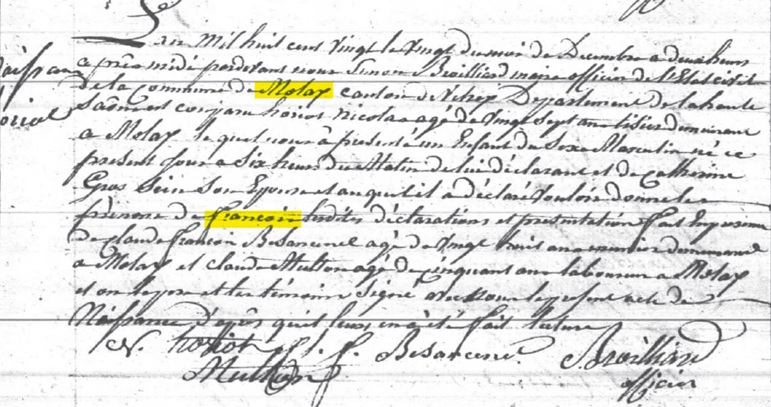 L'an mil huit cens vingt le vingt du mois de Decembre a deux heures
après midi pardevant nous Simon Broilliard maire officier de l'Etat civil
de la commune de Molay canton de Vitrey Département de la haute
Saône est comparu nicolas agé de vingt sept ans tisier demeurant
a Molay lequel nous à présenté un Enfant du Sexe Masculin né ce
present jour a Six heures du Matin de lui déclarant et de Catherine
Gros Jean Son Epouse et auquel il a déclaré vouloir donner le
prénom de francois lesdites déclarations et présentation fait En presence
de claude francois Besancenet agé de vingt huit ans demeurant
a Molay et claude Multon agé de cinquant ans laboureur a Molay
et ont le pere et les témoins Signé avec nous le present acte de
Naissance d'après qu'il leurs en à été fait lecture
N. f. Besancenet Broilliard
Multon officier